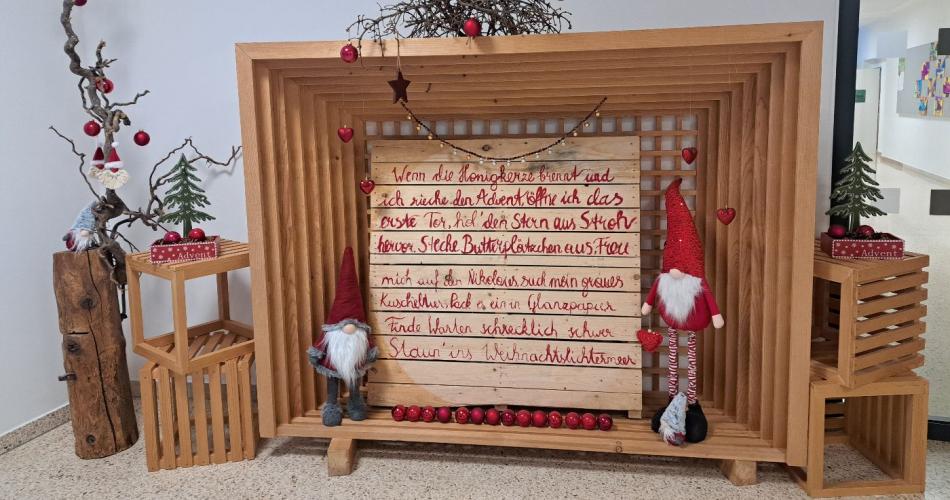 Wenn die Honigkerze brennt und
ich rieche den Advent. Öffne ich das
erste Tor, hol' den Stern aus Stroh
hervor. Steche Butterplätzchen aus. Freu
mich auf den Nikolaus, such mein graues
Kuscheltier. Pack es ein in Glanzpapier
Finde Warten schrecklich schwer
Staun' ins Weihnachtslichtermeer
Advent
Advent